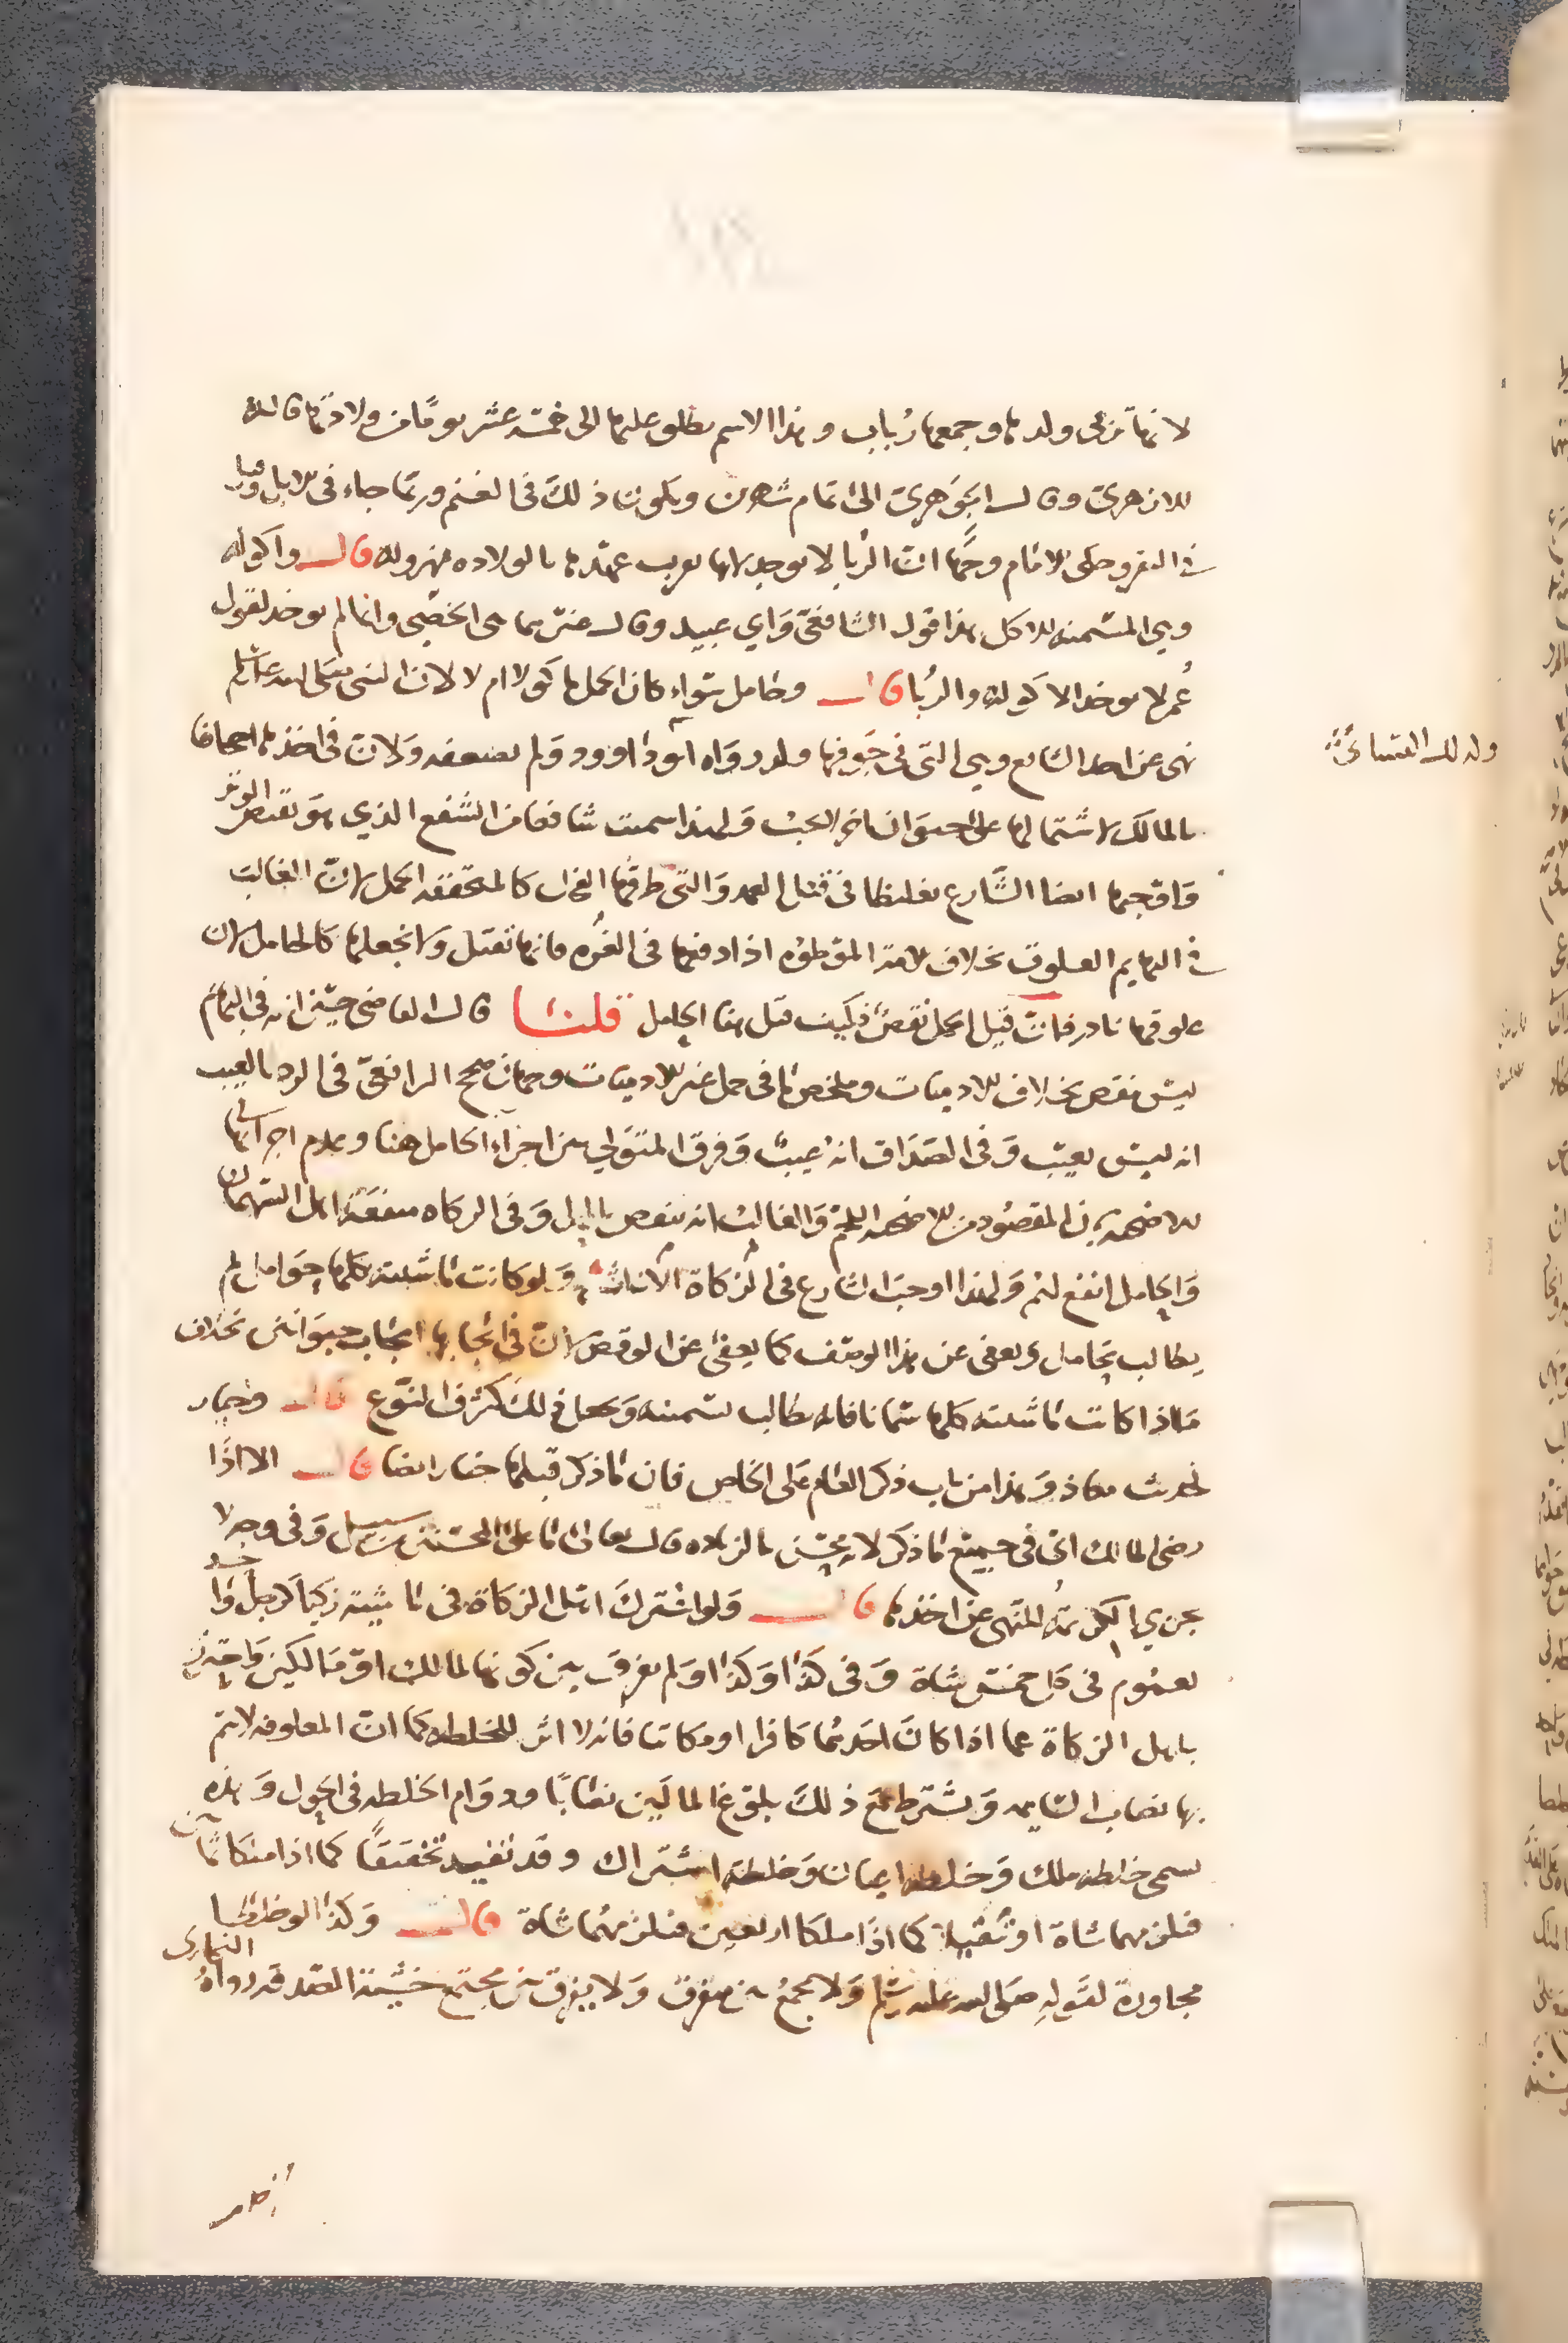 لانها تربى ولدها وجمعها رُباب وهذا الاسم يطلق عليها الى خمسة عشر يومًا من ولادتها قاله
الازهري وقال الجوهري الى تمام شهرين ويكون ذلك في الغنم وربما جاء في الابل وقيل
في البقر وحكى الامام وجهًا ان الربا لا يوجد لانها لقرب عهدها بالولادة مهزولة قال واكوله
وهي المسمنة للاكل هذا قول الشافعي وابي عبيد وقال غيرهما هي الخصي وانما لم يوخذ لقول
عُمر لا يوخذ الاكوله والربا قال وحامل سواء كان الحمل ماكولا ام لا لان النبي صلى الله عليه وسلم
نهى عن اخذ الشافع وهي التي في جوفها ولد رواه ابو داوود ولم يضعفه ولان في اخذها اجحافا
بالمالك لاشتمالها على حيوان اخر الجنب ولهذا سميت شافعا من الشفع الذي هو نقيض الوتر
واوجبها ايضا الشارع تغليظا في قتل العمد والتي طرقها الفحل كالمتحققه الحمل لان الغالب
في البهايم العلوق بخلاف الامة الموطوه اذا دفعها في الغره فانها تقبل ولا نجعلها كالحامل لان
علوقها نادر فان قيل الحمل نقص فكيف قيل هنا الحامل قلنا قال القاضي حسين انه في البهائم
ليس نقص بخلاف الادميات وملخص ما في حمل غير الادميات وجهان صحح الرافعي في الرد بالعيب
انه ليس بعيب وفي الصداق انه عيبٌ وفرق المتولي بين اجزاء الحامل هنا وعدم اجزائها في
الاضحية بان المقصود من الاضحية اللحم والغالب انه ينقص بالحمل وفي الزكاه منفعة اهل السهمان
والحامل انفع لهم ولهذا اوجب الشارع في الزكاة الاناث ولو كانت ماشيته كلها حوامل لم
يطالب بحامل ويعفى عن هذا الوصف كما يعفى عن الوقص لان في ايجابها ايجاب حيوانين بخلاف
ما اذا كانت ماشيته كلها سمانا فانه يطالب بسمينة وجعل ذلك كشرف النوع قال وخيار
لحديث معاذ وهذا من باب ذكر العام على الخاص فان ما ذكر قبلها خيار ايضا قال الا اذا
رضى المالك اى في جميع ما ذكر لانه محسن بالزيادة قال تعالى ما على المحسنين من سبيل وفي وجه لا
يجزي الكريمة للنهي عن اخذها قال ولو اشترك اهل الزكاة في ماشية زكيا كرجل واحد
لعموم في كل خمس شاة وفي كذا وكذا ولم يفرق بين كونها لمالك او مالكين واحترز
باهل الزكاة عما اذا كان احدهما كافرا او مكاتبا فانه لا اثر للخلطه كما ان المعلوفة لا يتم
بها نصاب السايمه ويشترط مع ذلك بلوغ المالين نصابًا ودوام الخلطه في الحول وهذه
تسمى خلطه ملك وخلطه اعيان وخلطه اشتراك وقد تفيد تخفيفًا كما اذا ملكا ثمانين
فيلزمهما شاة او تثقيلا كما اذا ملكا اربعين فيلزمهما شاة قال وكذا لو خلطا
مجاورة لقوله صلى الله عليه وسلم ولا يجمع بين متفرق ولا يفرق بين مجتمع خشية الصدقة رواه البخاري